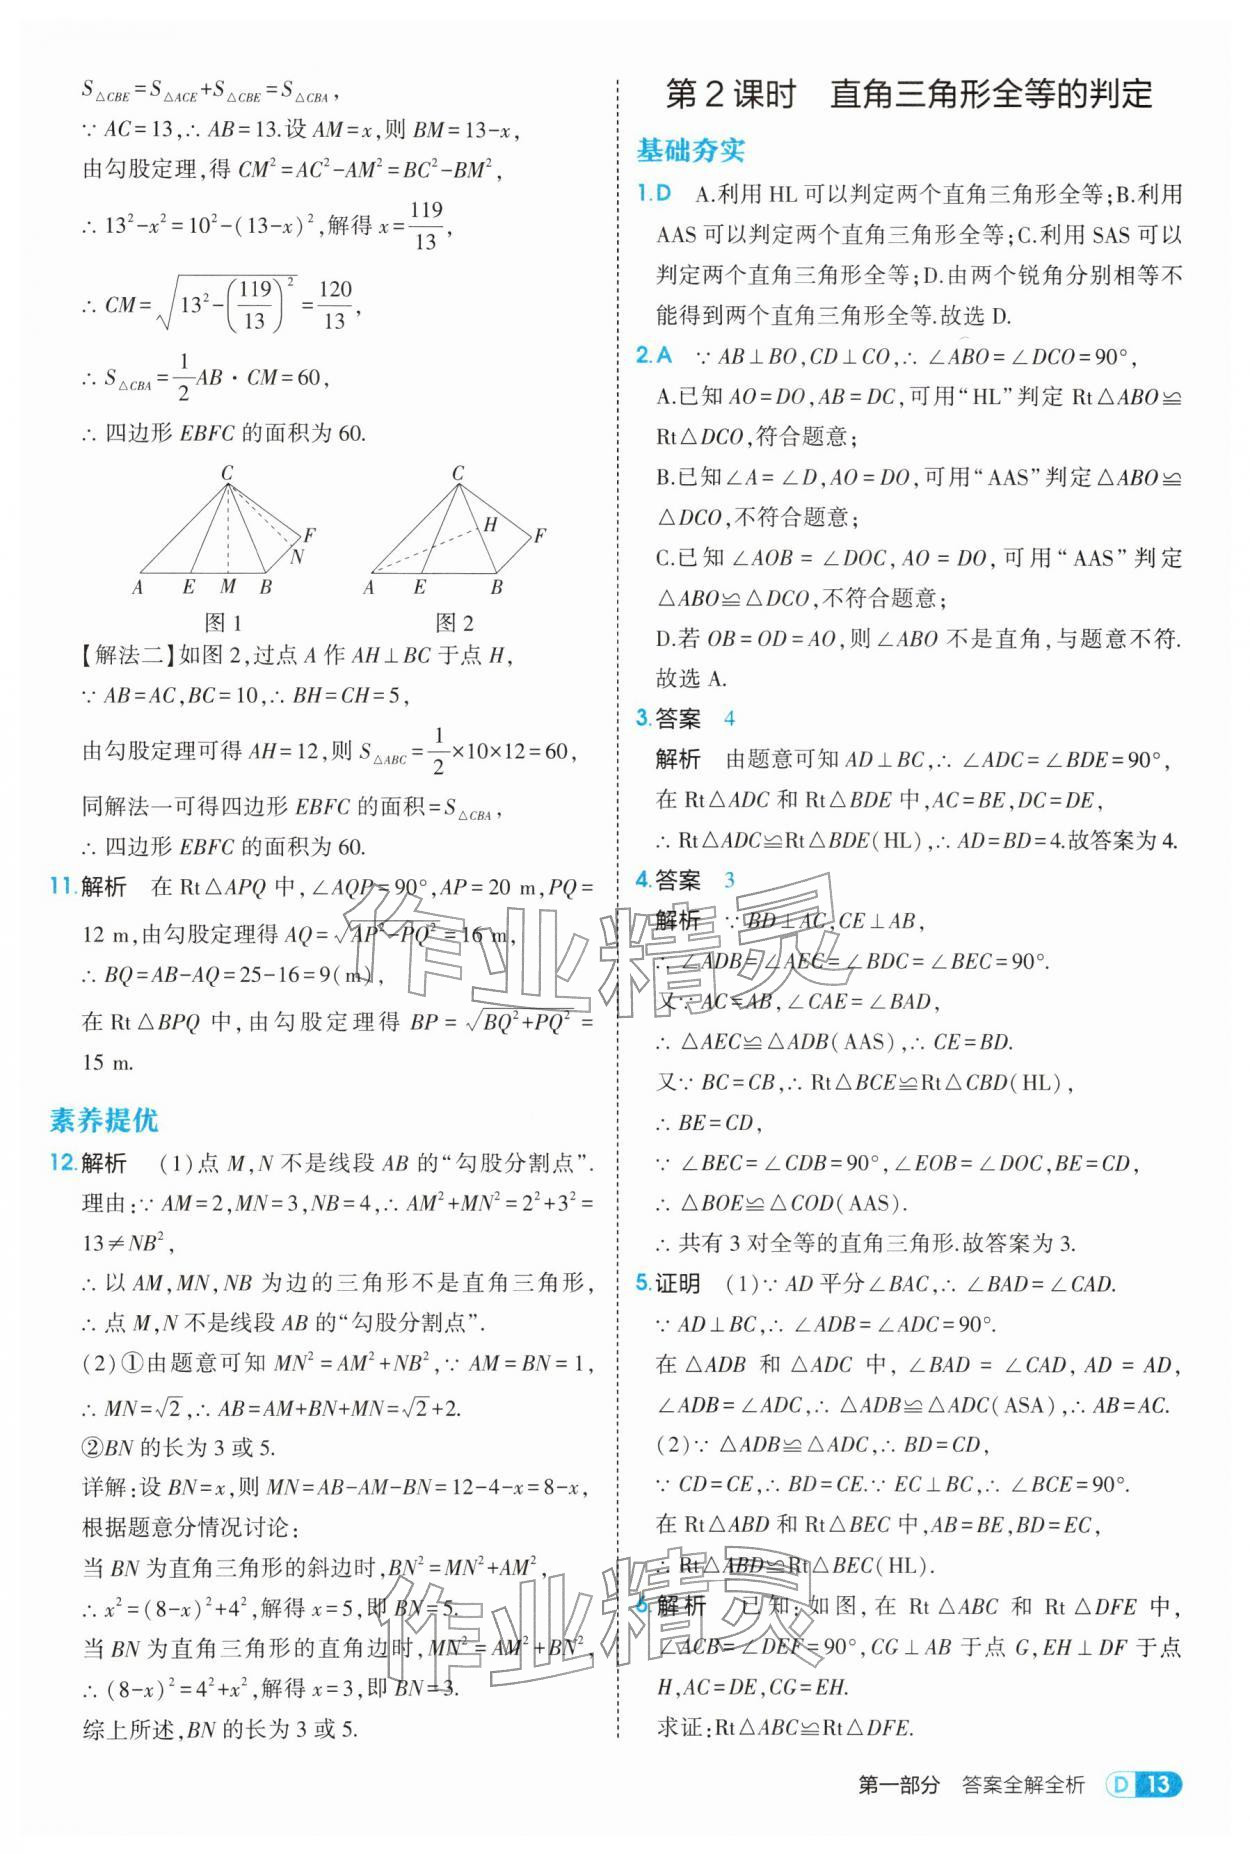 S△CBE=S△ACE+S△CBE=S△CBA,
∵ AC=13,∴ AB=13.设 AM=x,则 BM=13-x,
由勾股定理,得 CM²=AC²-AM²=BC²-BM²,
∴ 13²-x²=10²-(13-x)²,解得 x=119/13,
∴ CM=√(13²-(119/13)²)=120/13,
∴ S△CBA=1/2 AB·CM=60,
∴ 四边形 EBFC 的面积为 60.
C
F
N
A E M B
图 1
C
H
F
A E B
图 2
【解法二】如图 2,过点 A 作 AH⊥BC 于点 H,
∵ AB=AC,BC=10,∴ BH=CH=5,
由勾股定理可得 AH=12,则 S△ABC=1/2×10×12=60,
同解法一可得四边形 EBFC 的面积=S△CBA,
∴ 四边形 EBFC 的面积为 60.
11.解析 在 Rt△APQ 中,∠AQP=90°,AP=20 m,PQ=
12 m,由勾股定理得 AQ=√(AP²-PQ²)=16 m,
∴ BQ=AB-AQ=25-16=9(m),
在 Rt△BPQ 中,由勾股定理得 BP=√(BQ²+PQ²)=
15 m.
素养提优
12.解析 (1)点 M,N 不是线段 AB 的“勾股分割点”.
理由:∵ AM=2,MN=3,NB=4,∴ AM²+MN²=2²+3²=
13≠NB²,
∴ 以 AM,MN,NB 为边的三角形不是直角三角形,
∴ 点 M,N 不是线段 AB 的“勾股分割点”.
(2)①由题意可知 MN²=AM²+NB²,∵ AM=BN=1,
∴ MN=√2,∴ AB=AM+BN+MN=√2+2.
②BN 的长为 3 或 5.
详解:设 BN=x,则 MN=AB-AM-BN=12-4-x=8-x,
根据题意分情况讨论:
当 BN 为直角三角形的斜边时,BN²=MN²+AM²,
∴ x²=(8-x)²+4²,解得 x=5,即 BN=5.
当 BN 为直角三角形的直角边时,MN²=AM²+BN²,
∴ (8-x)²=4²+x²,解得 x=3,即 BN=3.
综上所述,BN 的长为 3 或 5.
第 2 课时 直角三角形全等的判定
基础夯实
1.D A.利用 HL 可以判定两个直角三角形全等;B.利用
AAS 可以判定两个直角三角形全等;C.利用 SAS 可以
判定两个直角三角形全等;D.由两个锐角分别相等不
能得到两个直角三角形全等.故选 D.
2.A ∵ AB⊥BO,CD⊥CO,∴ ∠ABO=∠DCO=90°,
A.已知 AO=DO,AB=DC,可用“HL”判定 Rt△ABO≌
Rt△DCO,符合题意;
B.已知∠A=∠D,AO=DO,可用“AAS”判定△ABO≌
△DCO,不符合题意;
C.已知 ∠AOB=∠DOC,AO=DO,可用“AAS”判定
△ABO≌△DCO,不符合题意;
D.若 OB=OD=AO,则∠ABO 不是直角,与题意不符.
故选 A.
3.答案 4
解析 由题意可知 AD⊥BC,∴ ∠ADC=∠BDE=90°,
在 Rt△ADC 和 Rt△BDE 中,AC=BE,DC=DE,
∴ Rt△ADC≌Rt△BDE(HL),∴ AD=BD=4.故答案为 4.
4.答案 3
解析 ∵ BD⊥AC,CE⊥AB,
∴ ∠ADB=∠AEC=∠BDC=∠BEC=90°.
又∵ AC=AB,∠CAE=∠BAD,
∴ △AEC≌△ADB(AAS),∴ CE=BD.
又∵ BC=CB,∴ Rt△BCE≌Rt△CBD(HL),
∴ BE=CD,
∵ ∠BEC=∠CDB=90°,∠EOB=∠DOC,BE=CD,
∴ △BOE≌△COD(AAS).
∴ 共有 3 对全等的直角三角形.故答案为 3.
5.证明 (1)∵ AD 平分∠BAC,∴ ∠BAD=∠CAD.
∵ AD⊥BC,∴ ∠ADB=∠ADC=90°.
在 △ADB 和 △ADC 中,∠BAD=∠CAD,AD=AD,
∠ADB=∠ADC,∴ △ADB≌△ADC(ASA),∴ AB=AC.
(2)∵ △ADB≌△ADC,∴ BD=CD,
∵ CD=CE,∴ BD=CE.∵ EC⊥BC,∴ ∠BCE=90°.
在 Rt△ABD 和 Rt△BEC 中,AB=BE,BD=EC,
∴ Rt△ABD≌Rt△BEC(HL).
6.解析 已知:如图,在 Rt△ABC 和 Rt△DFE 中,
∠ACB=∠DEF=90°,CG⊥AB 于点 G,EH⊥DF 于点
H,AC=DE,CG=EH.
求证:Rt△ABC≌Rt△DFE.
第一部分 答案全解全析 D 13
作业精灵
作业精灵